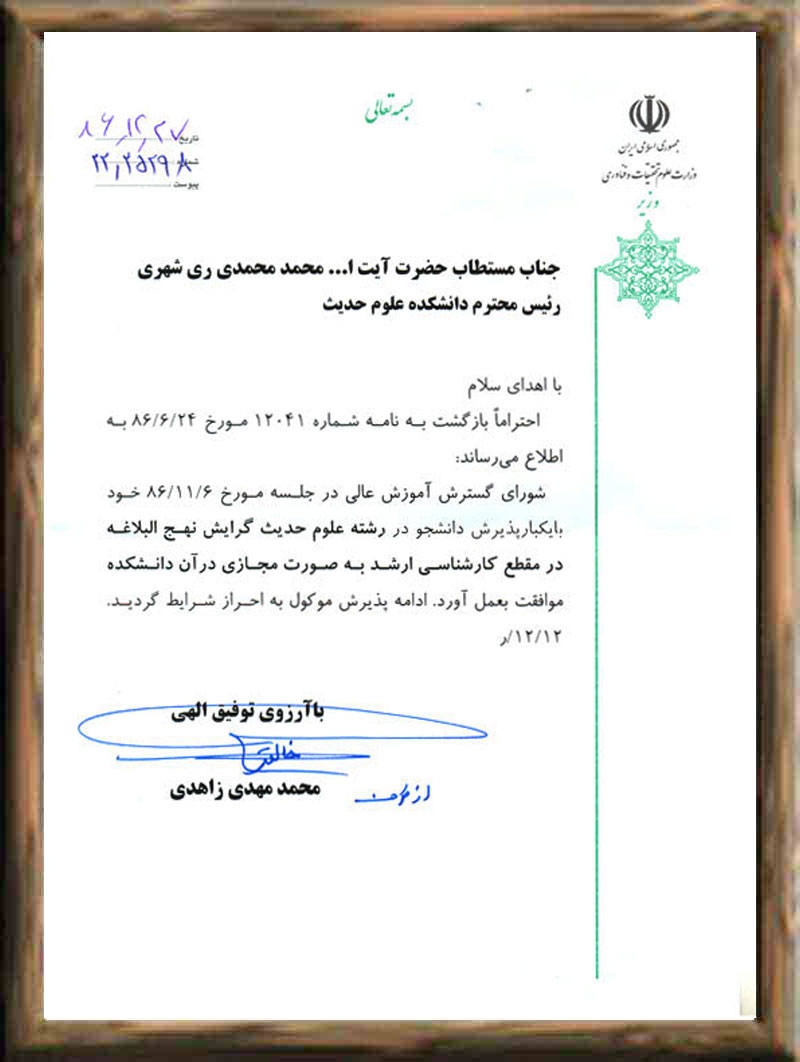 بسمه تعالی
جمهوری اسلامی ایران
وزارت علوم تحقیقات و فناوری
وزیر
تاریخ ۸۶٫۱۲٫۲۷
شماره
پیوست
جناب مستطاب حضرت آیت ا... محمد محمدی ری شهری
رئیس محترم دانشکده علوم حدیث
با اهدای سلام
احتراماً بازگشت به نامه شماره ۱۲۰۴۱ مورخ ۸۶/۶/۲۴ به
اطلاع می‌رساند:
شورای گسترش آموزش عالی در جلسه مورخ ۸۶/۱۱/۶ خود
بایکبارپذیرش دانشجو در رشته علوم حدیث گرایش نهج البلاغه
در مقطع کارشناسی ارشد به صورت مجازی درآن دانشکده
موافقت بعمل آورد. ادامه پذیرش موکول به احراز شرایط گردید.
۱۲/۱۲/ر
باآرزوی توفیق الهی
محمد مهدی زاهدی
از طرف